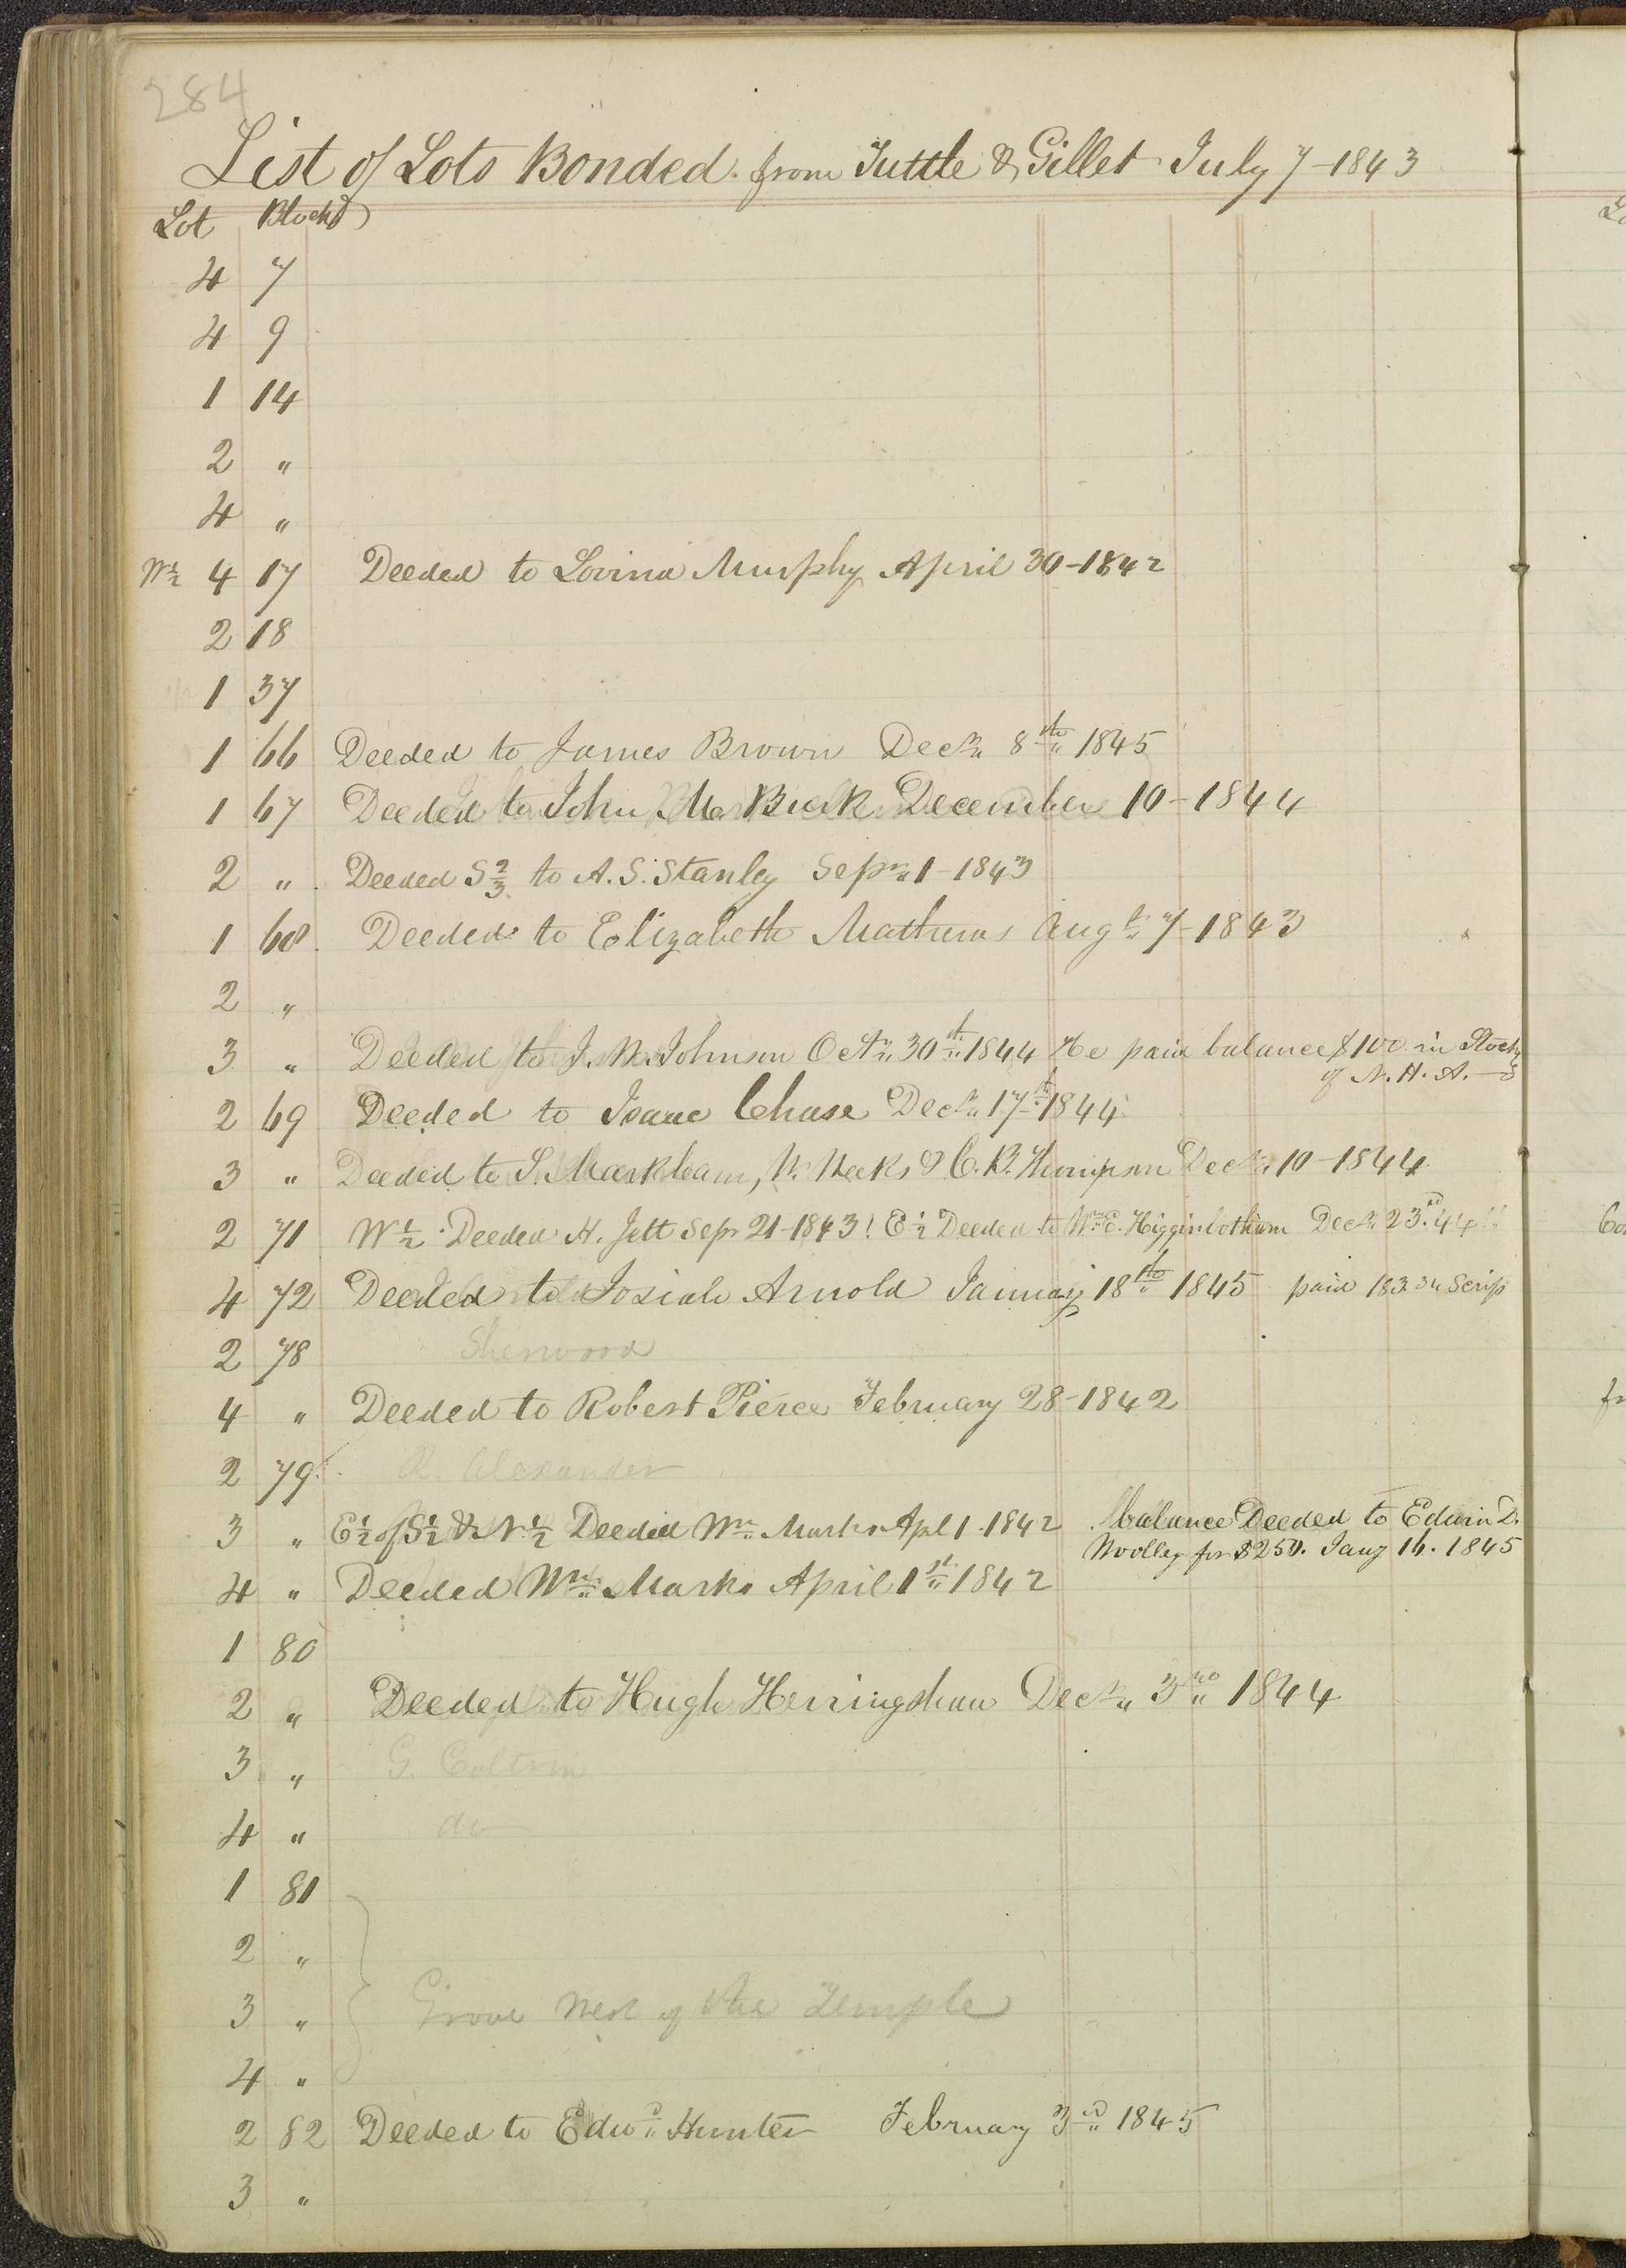 284
List of Lots Bonded from Tuttle & Gillet July 7-1843
Lot Block
4 7
4 9
1 14
2 "
4 "
W½ 4 17 Deeded to Lovina Murphy April 30-1842
2 18
1 37
1 66 Deeded to James Brown Decr 8th 1845
1 67 Deeded to John M. Burk December 10-1844
2 " Deeded S⅔ to A. S. Stanley Sepr 1-1843
1 68 Deeded to Elizabeth Mathews Augt 7-1843
2 "
3 " Deeded to J. M. Johnson Octr 30th 1844 He paid balance $100 in Stock
of N. H. A.
2 69 Deeded to Isaac Chase Decr 17th 1844
3 " Deeded to S. Markham, & C. B. Thompson Decr 10-1844
2 71 W½ Deeded H. Jett Sepr 21-1843! E½ Deeded to Wm E. Higginbotham Decr 23rd 44
4 72 Deeded to Josiah Arnold January 18th 1845 paid 183.34 Scrip
2 78 Sherwood
4 " Deeded to Robert Pierce February 28-1842
2 79 R. Alexander
3 " E½ of S½ & N½ Deeded Wm Marks Apl 1-1842 balance Deeded to Edwin D.
Woolley for $250. Jany 16. 1845
4 " Deeded Wm Marks April 1st 1842
1 80
2 " Deeded to Hugh Herringshaw Decr 3rd 1844
3 " G. Coltrin
4 " do
1 81
2 "
3 " Grove West of the Temple
4 "
2 82 Deeded to Edwd Hunter February 3rd 1845
3 "